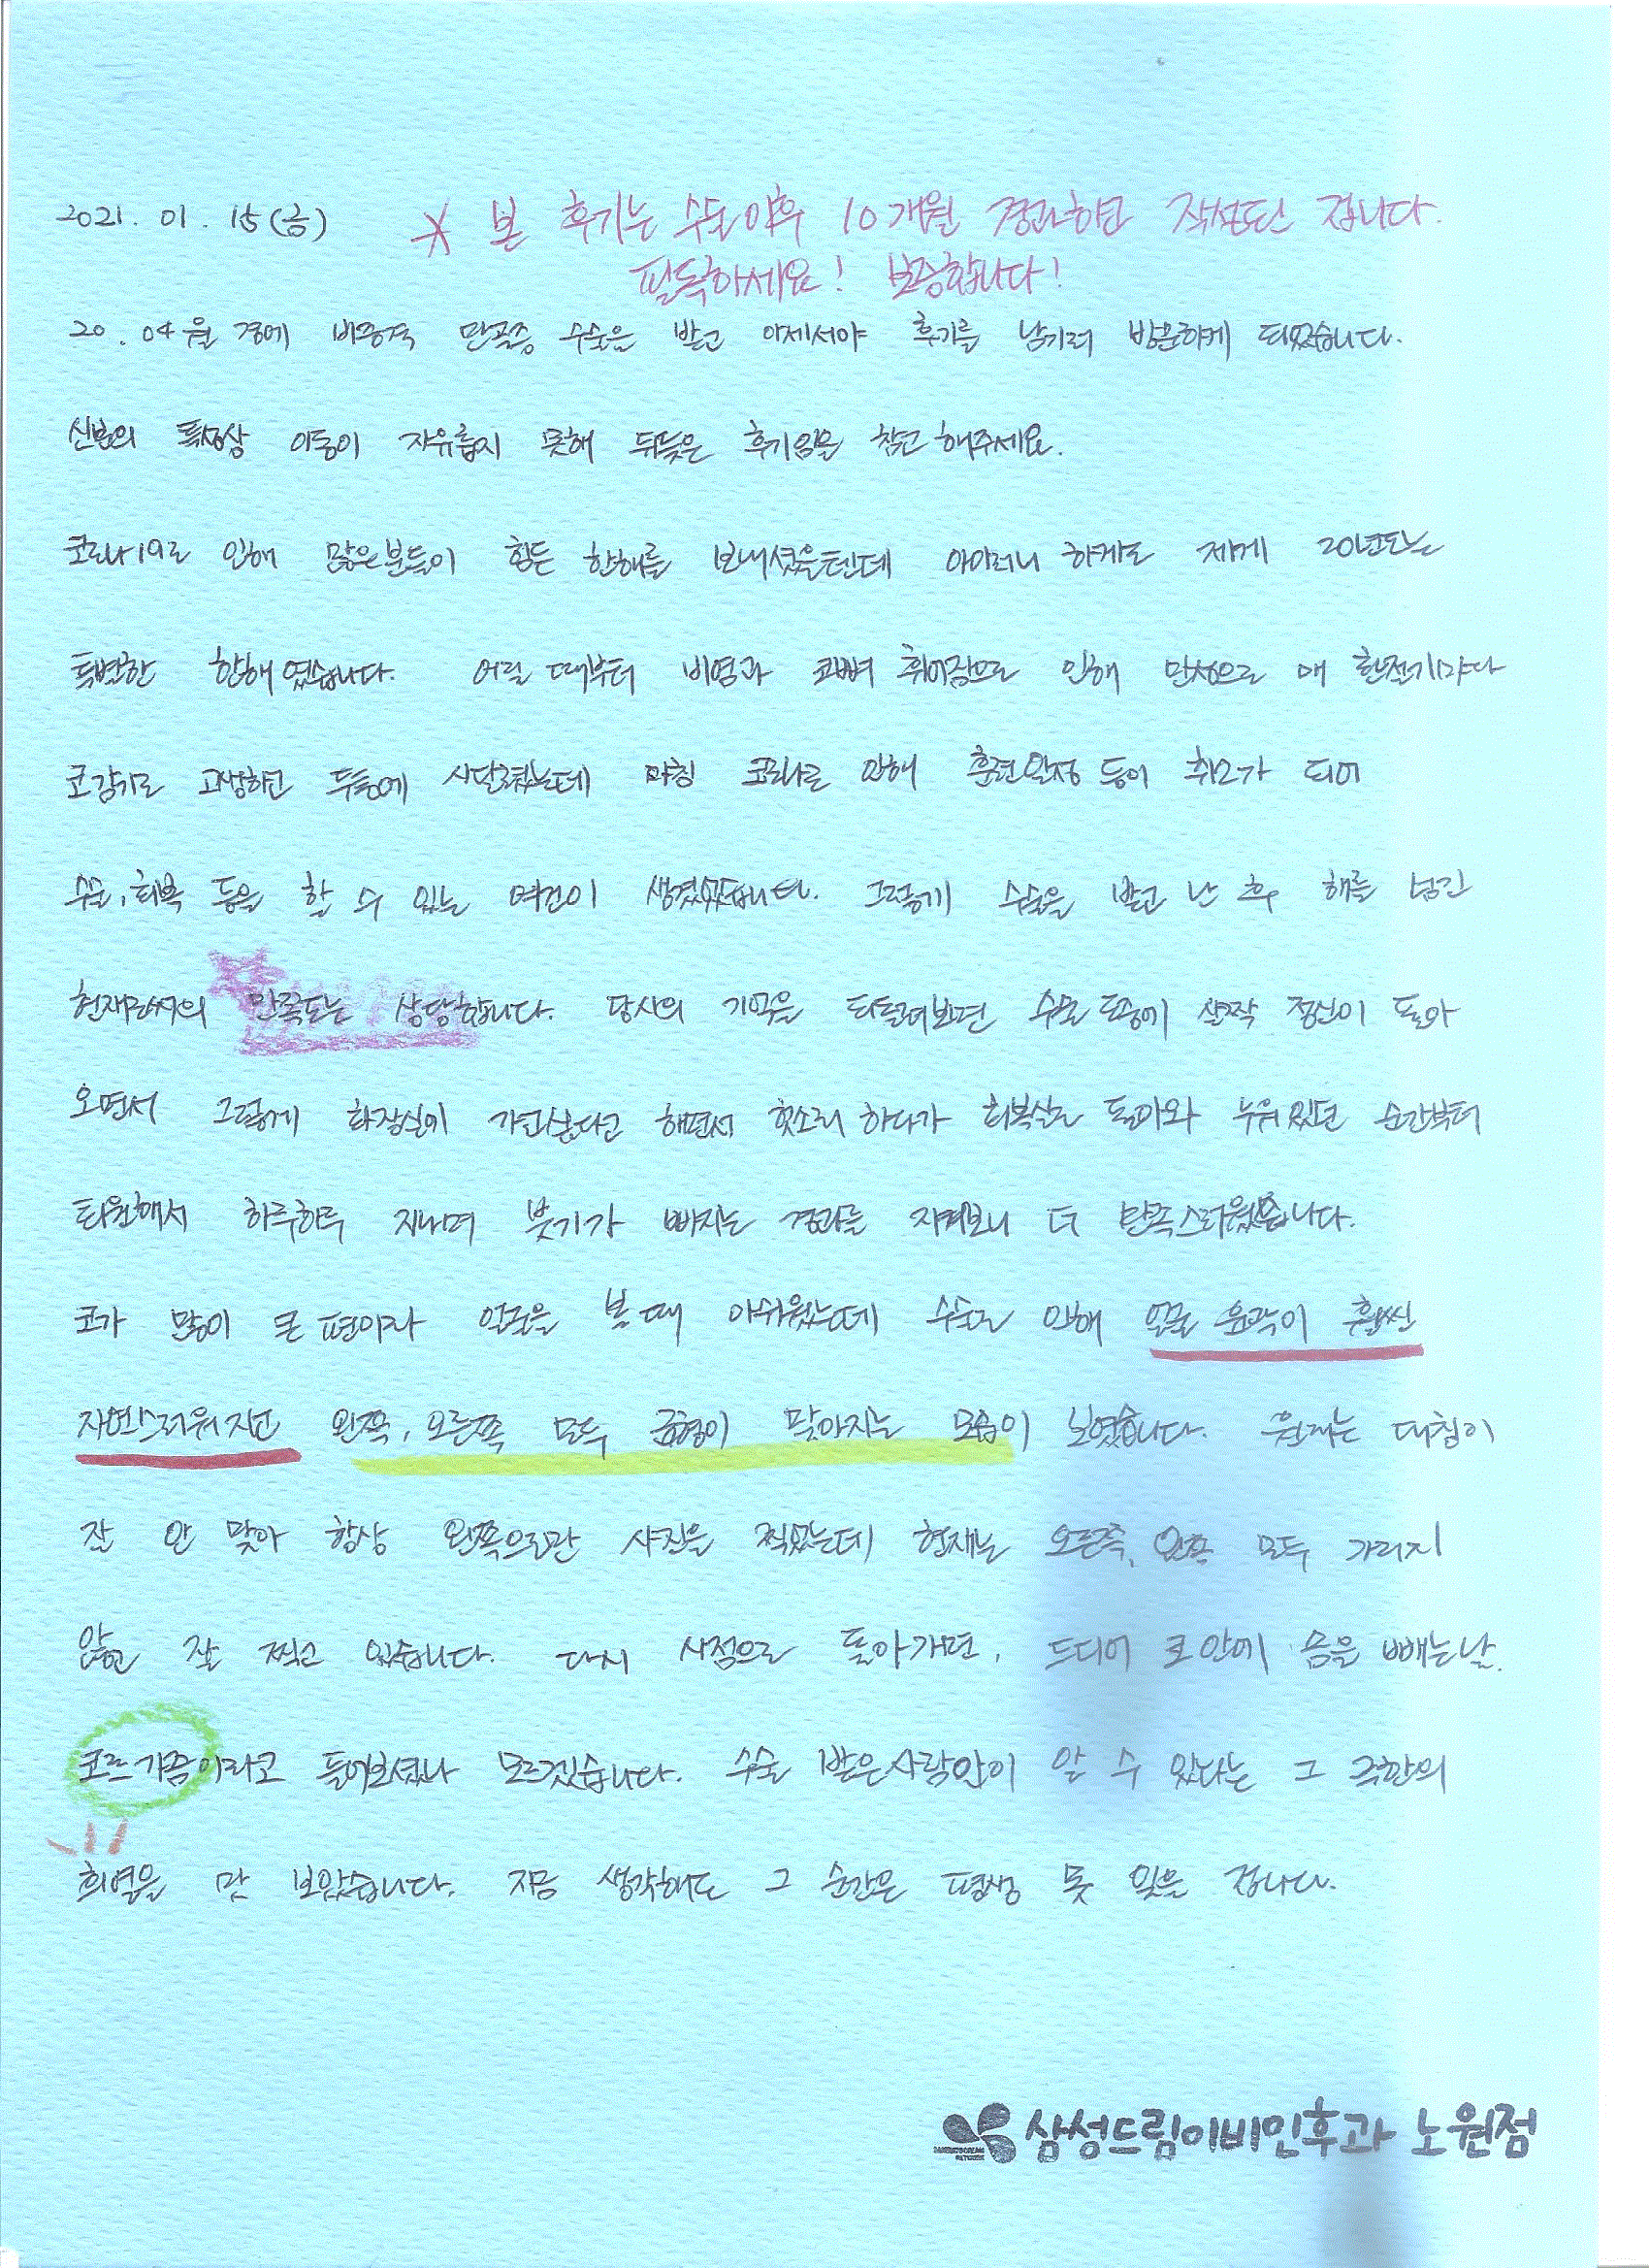 2021. 01. 15(금)
* 본 후기는 수술이후 10개월 경과하고 작성된 겁니다.
필독하세요! 보증합니다!
20.04월 경에 비중격 만곡증 수술을 받고 이제서야 후기를 남기러 방문하게 되었습니다.
신분의 특성상 이동이 자유롭지 못해 뒤늦은 후기임을 참고해주세요.
코로나19로 인해 많은분들이 힘든 한해를 보내셨을텐데 아이러니 하게도 제게 20년도는
특별한 한해였습니다. 어릴 때부터 비염과 코뼈 휘어짐으로 인해 만성으로 매 환절기마다
코감기로 고생하고 두통에 시달렸는데 마침 코로나로 인해 훈련일정 등이 취소가 되어
수술, 회복 등을 할 수 있는 여건이 생겼었습니다. 그렇게 수술을 받고 난 후 해를 넘긴
현재로서의 만족도는 상당합니다. 당시의 기억을 되돌려보면 수술 도중에 살짝 정신이 돌아
오면서 그렇게 화장실이 가고싶다고 하면서 헛소리 하다가 회복실로 돌아와 누워있던 순간부터
퇴원해서 하루하루 지나며 붓기가 빠지는 경과를 지켜보니 더 만족스러웠습니다.
코가 많이 큰 편이라 얼굴을 볼 때 아쉬웠는데 수술로 인해 얼굴 윤곽이 훨씬
자연스러워지고 왼쪽, 오른쪽 모두 균형이 맞아지는 모습이 보였습니다. 원래는 대칭이
잘 안 맞아 항상 왼쪽으로만 사진을 찍었는데 현재는 오른쪽, 왼쪽 모두 가리지
않고 잘 찍고 있습니다. 다시 시점으로 돌아가면, 드디어 코 안에 솜을 빼는날.
코르가즘이라고 들어보셨나 모르겠습니다. 수술 받은사람만이 알 수 있다는 그 극한의
희열을 맛 보았습니다. 지금 생각해도 그 순간은 평생 못 잊을 겁니다.
삼성드림이비인후과 노원점